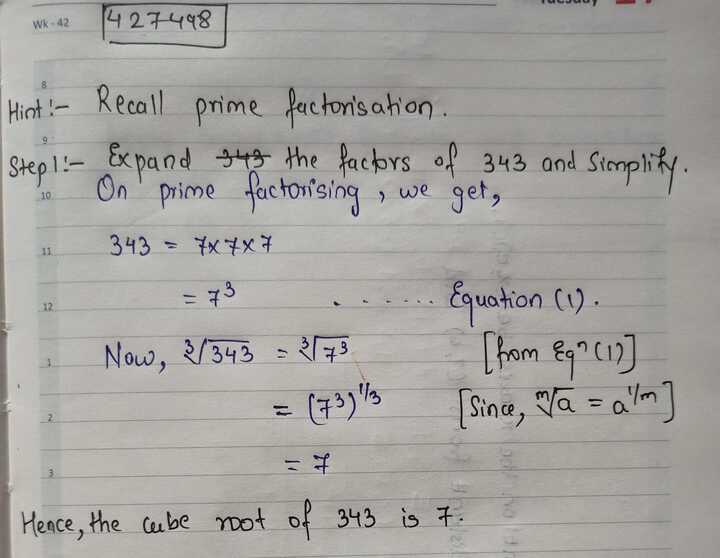 Wk - 42
427498
8
Hint :- Recall prime factorisation.
9
Step 1 :- Expand 343 the factors of 343 and Simplify.
10
On prime factorising, we get,
11
343 = 7×7×7
12
= 7³ . . . . . . . Equation (1).
1
Now, ∛343 = ∛7³ [from Eqⁿ (1)]
2
= (7³)^1/3 [Since, ᵐ√a = a^1/m]
3
= 7
Hence, the cube root of 343 is 7.